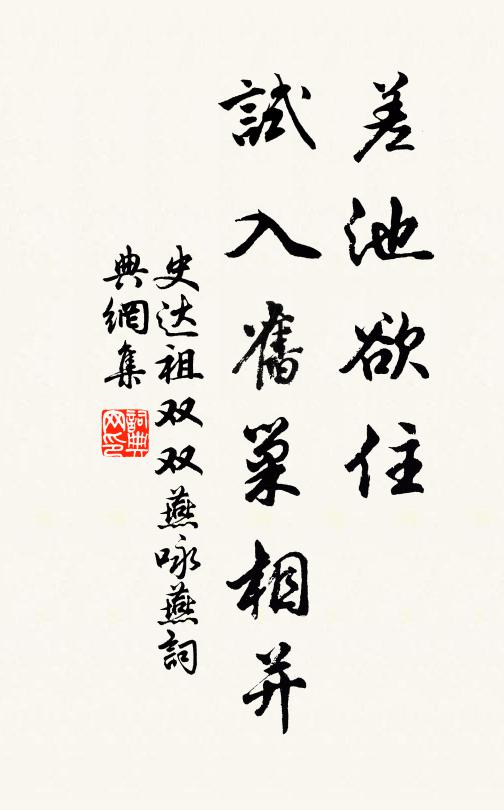 差池欲住
試入舊巢相并
史达祖双双燕咏燕詞
典網集
詞典网印